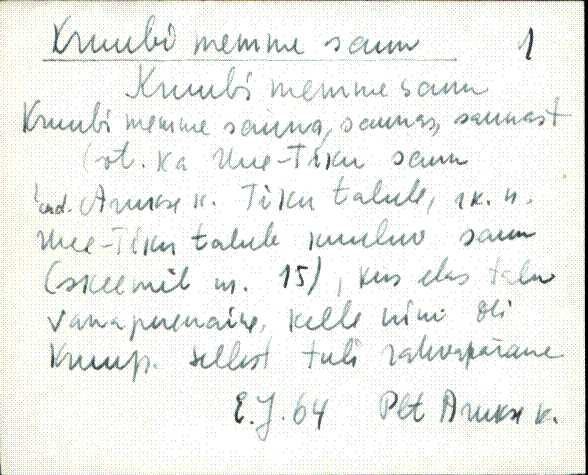 Kruubi memme saun 1
Kruubi memme saun
Kruubi memme sauna, saunas, saunast
(vt. ka Uue-Tiku saun
end. Arukse k. Tiku talule, rk. n.
Uue-Tiku talule kuuluv saun
(skeemil nr. 15), kus elas talu
vanaperenaine, kelle nimi oli
Kruup. Sellest tuli rahvapärane
E.J. 64 Plt Arukse k.